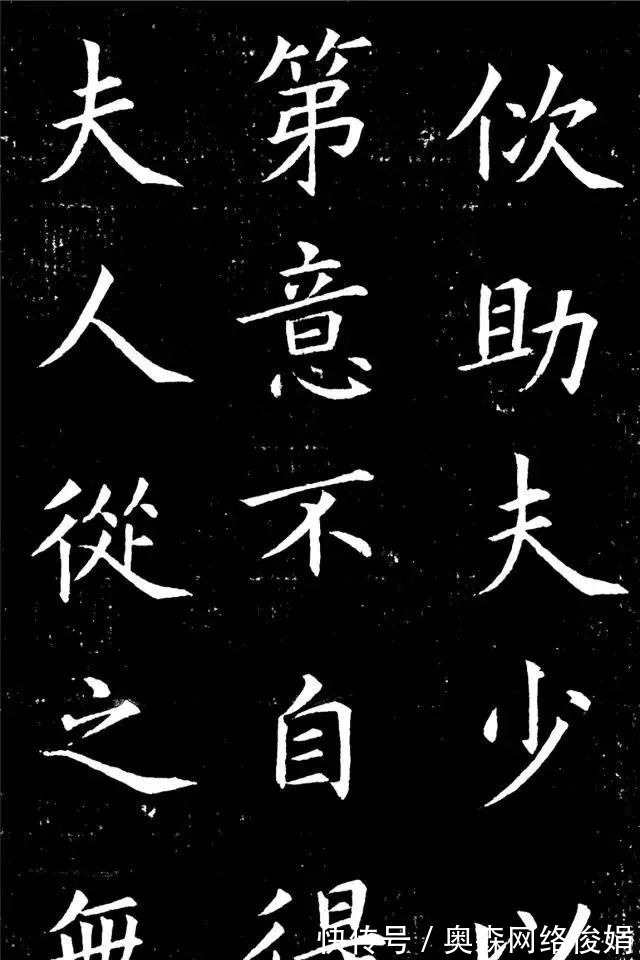 佽助夫少以
第意不自得
夫人從之無
快传号 / 奥森网络俊娟